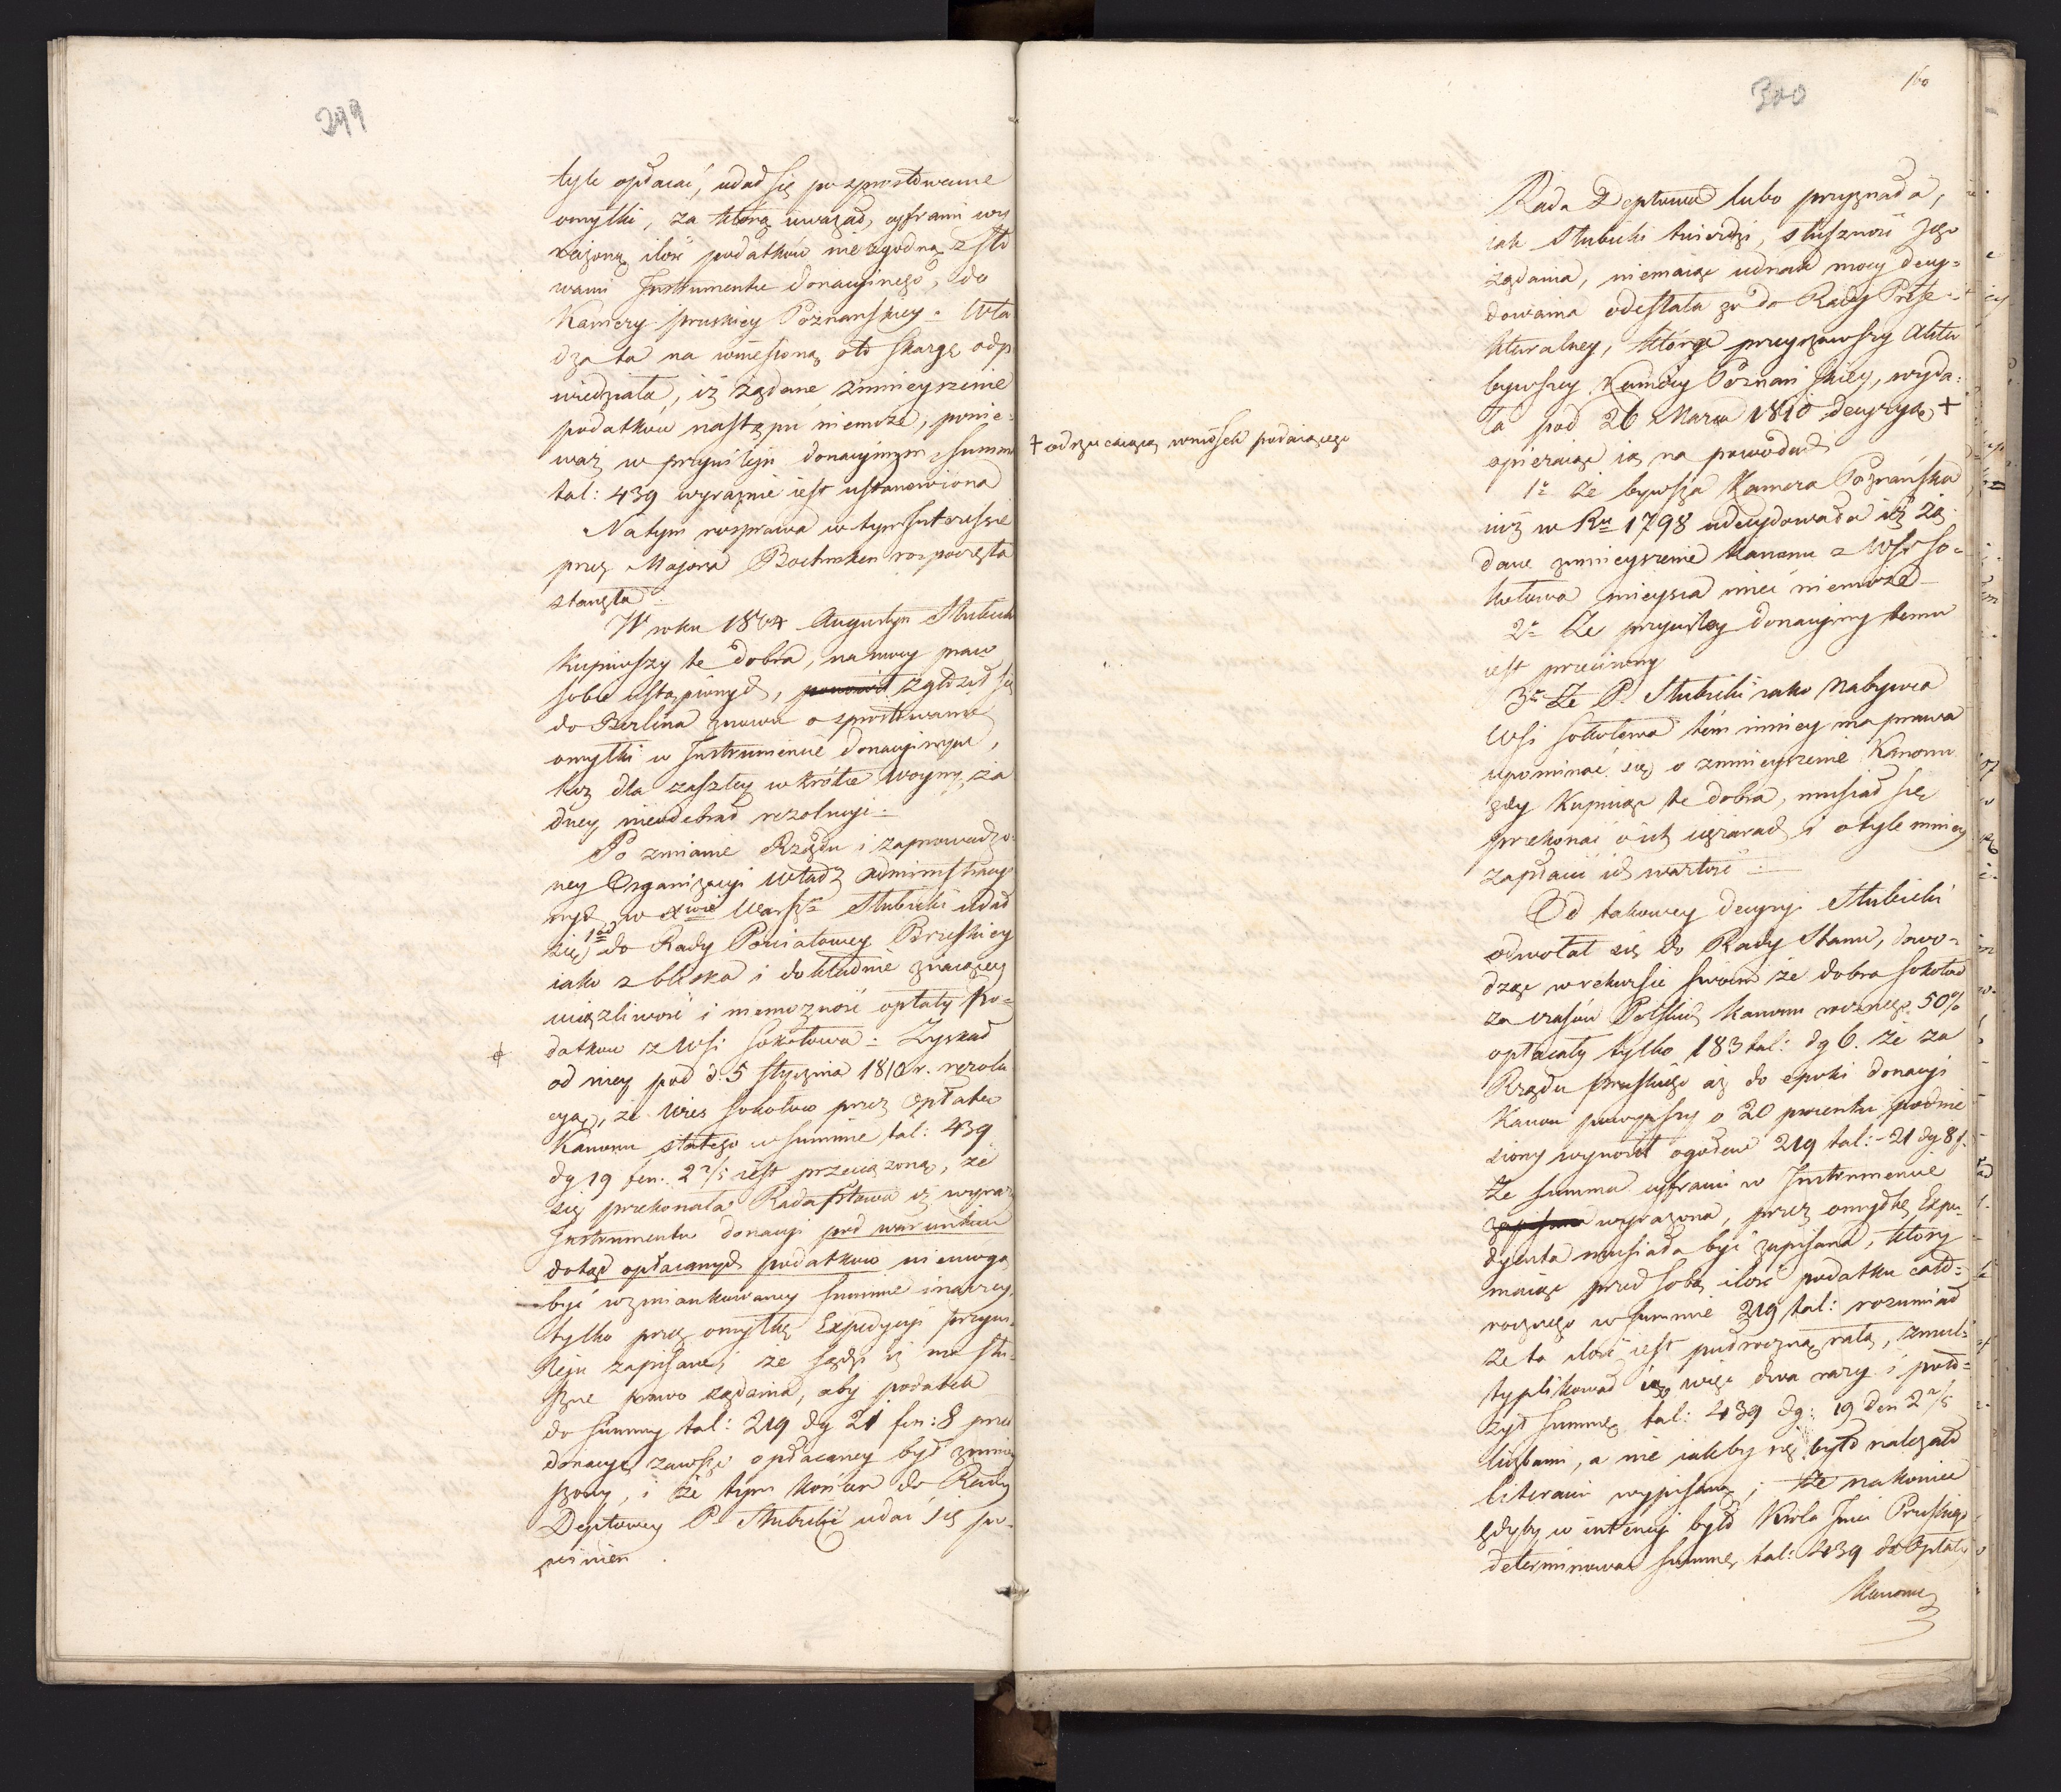 299
tyle opłacać, udał się po sprostowanie
omyłki, za którą uważał, cyframi wy
rażoną ilość podatków niezgodną z sło
wami Instrumentu donacyinego, do
Kamery pruskiey Poznanskiey. Wła
dza ta na wniesioną oto skargę odp
wiedziała, iż żądane zmnieyszenie
podatków nastąpić niemoże, ponie-
waż w przywileju donacyinym summa
tal: 439 wyraznie iest ustanowiona
Natym rosprawa w tym Interessie
przez Majora Boehmken rospoczęta
stanęła
W roku 1804 Augustyn Słubicki
kupiwszy te dobra, na mocy praw
sobie ustąpionych, ponowił zgłosił się
do Berlina znowu o sprostowanie
omyłki w Instrumencie donacyinym,
lecz dla zaszłey wkrótce woyny ża
dney nieodebrał rezolucyi
Po zmianie Rządu i zaprowadzo-
ney Organizacyi władz administracyi
nych w Xwie Warszm Słubicki udał
się 1od do Rady Powiatowey Brzeskiey
iako z bliska i dokładnie znaiącey
uciążliwość i niemożność opłaty po-
datkow z Wsi Sokołowa: Zyskał
od niey pod d. 5 stycznia 1810 r. rezolu
cyą, że wies Sokołowo przez Opłatę
Kanonu stałego w summie tal: 439
dg 19 fen. 2 2/5 iest przeciążoną, że
się przekonała Rada Ptowa iż wyraz
Instrumentu donacyi pod warunkiem
dotąd opłacanych podatkow niemogą
być wzmiankowaney summie inaczey,
tylko przez omyłkę Expedycyi przywi-
leju zapisane, że sądzi iż ma słu-
szne prawo żądania, aby podatek
do summy tal: 219 dg 21 fen: 8 przed
donacyą zawsze opłacaney był zmniey
szony, i że tym końcem do Rady
Deptowey P. Słubicki udać się po-
winien.
300
160
Rada Deptowa lubo przyznała,
iak Słubicki twierdzi, słuszność Jego
żądania, niemaiąc iednak mocy decy-
dowania odesłała go do Rady Prefe-
kturalney, która przeyrzawszy Akta
bywszey Kamery Poznańskiey, wyda-
ła pod 26 Marca 1810 decyzyą +
+ odrzucaiącą wniosek podaiącego
opieraiąc ią na powodach
1o Że bywsza Kamera Poznańska
iuż w Ru 1798 udecydowała iż żą-
dane zmnieyszenie Kanonu z Wsi So-
kołowa mieysca mieć niemoże
2o Że przywiley donacyiny temu
iest przeciwny
3o Że P. Słubicki iako Nabywca
Wsi Sokołowa tem mniey ma prawa
upominać się o zmnieyszenie Kanonu
gdy Kupuiąc te dobra, musiał się
przekonać o ich ciężarach i o tyle mniey
zapłacić ich wartość
Od takowey decyzyi Słubicki
odwołał się do Rady Stanu, dowo-
dząc w rekursie swoim że dobra Sokołow
za czasów Polskich Kanonu rocznego 50%
opłacały tylko 183 tal: dg 6. że za
Rządu Pruskiego aż do epoki donacyi
Kanon powyższy o 20 procentu podnie
siony wynosił ogółem 219 tal:- 21 dg 8 f.
Że summa cyframi w Instrumencie
zapisana wyrażona, przez omyłkę Expe-
dyenta musiała być zapisana, który
maiąc przed sobą ilość podatku cało-
rocznego w summie 219 tal: rozumiał
że ta ilość iest puł roczną ratą, zmul-
typlikował ią więc dwa razy i poło-
żył summę tal: 439 dg: 19 den 2 2/5
liczbami, a nie iakby rzę było należało
literami wypisaną; Że nakoniec
gdyby w intencyi było Króla Jmci Pruskiego
determinować summę tal: 439 do Opłaty
Kanonu